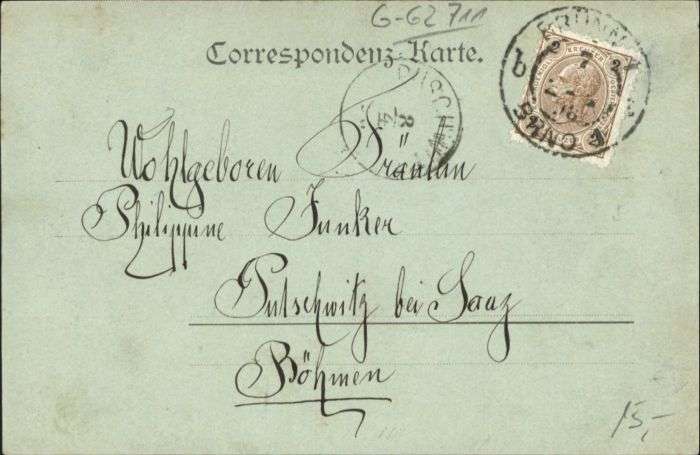 G-62 711
Correspondenz-Karte.
BRÜNN
BRNO
b
Wohlgeboren Fräulein
Philippine Junker
Putschwitz bei Saaz
Böhmen
15,-